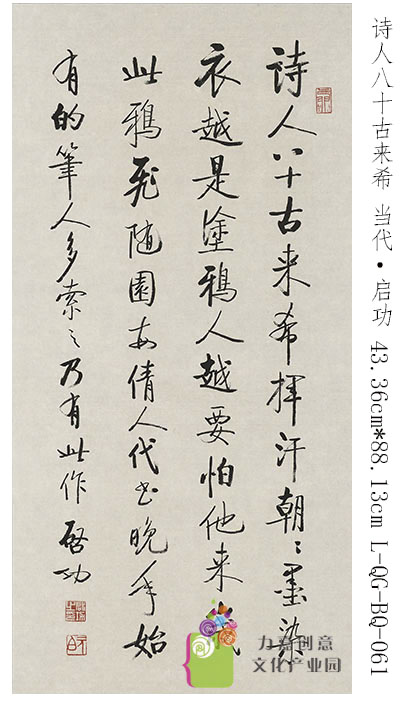 诗人八十古来希 当代·启功 43.36cm*88.13cm L-QG-BQ-061
诗人八十古来希揮汗朝〻墨染
衣越是塗鴉人越要怕他来
此鴉飛随園每倩人代书晚年始
有的筆人多索之乃有此作 啓功
创意
文化产业园